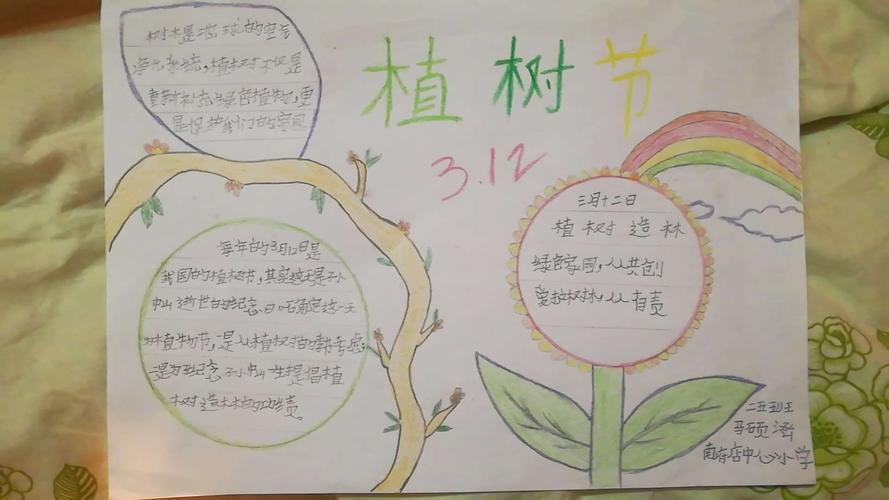 植树节
3.12
树木是地球的空气
净化系统,植树不仅是
重新补充绿色植物,更
是保护我们的家园
每年的3月12日是
我国的植树节,其实这天是孙
中山逝世的纪念日确定这一天
为植物节,是从植树的考虑
是为纪念孙中山生提倡植
树造林的功绩。
三月十二日
植树造林
绿色家园,从共创
爱护树林,从自责
二五班
马硕
南店中心小学